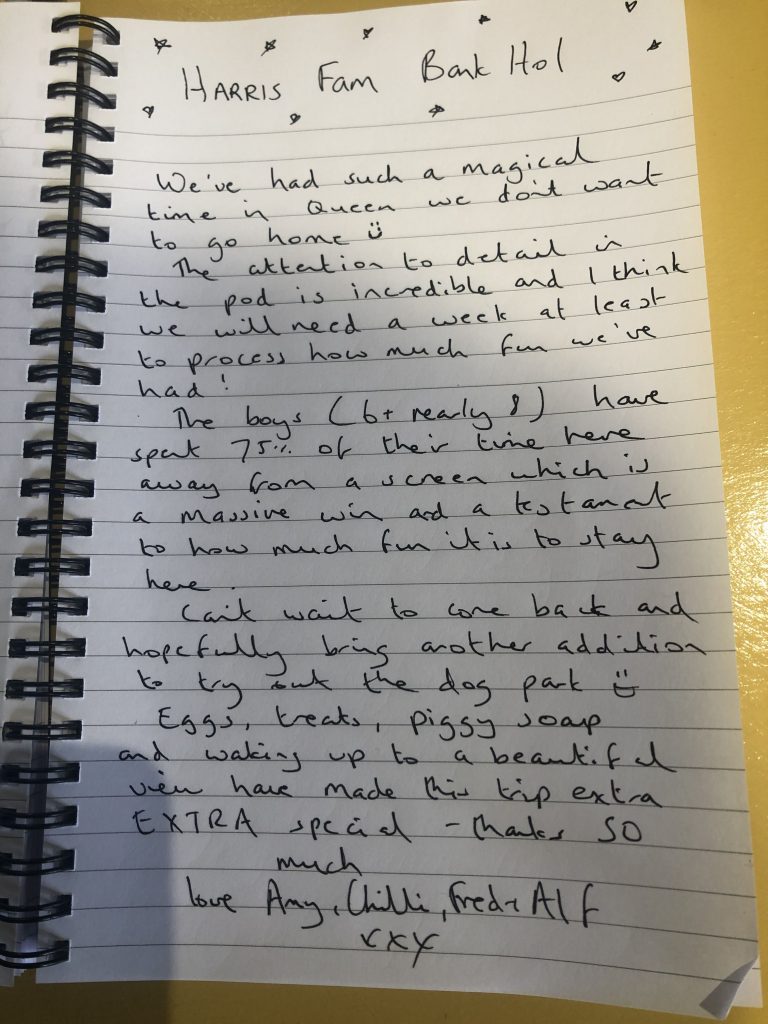 HARRIS Fam Bank Hol
We've had such a magical
time in Queen we don't want
to go home
The attention to detail in
the pod is incredible and I think
we will need a week at least
to process how much fun we've
had!
The boys (6+ nearly 8) have
spent 75% of their time here
away from a screen which is
a massive win and a testament
to how much fun it is to stay
here.
Can't wait to come back and
hopefully bring another addition
to try out the dog park
Eggs, treats, piggy soap
and waking up to a beautiful
view have made this trip extra
EXTRA special - thanks SO
much
love Amy, Chilli, Fred + Alf
xxx